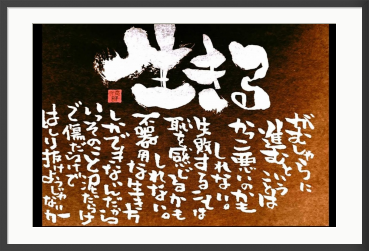 生きる
がむしゃらに
進むということは
かっこ悪いのかも
しれない。
生敗することは
恥を感じるかも
しれない。
不器用な生き方
しかできないんだから
いっそのこと泥だらけ
で傷だらけで
はしり抜けようじゃないか